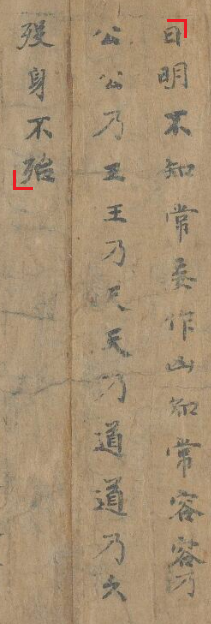 曰明不知常妄作凶知常容容乃
公公乃王王乃天天乃道道乃久
殁身不殆